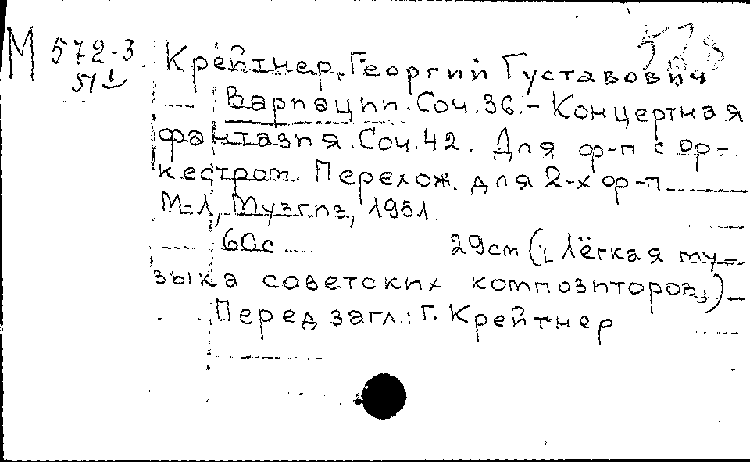 М 572-3
51
Крейтнер, Георгий Густавович
Вариации. Соч. 36. - Концертная
фантазия. Соч. 42. Для ф-п с ор-
кестром. Перелож. для 2-х ф-п.
М-Л, Музгиз, 1951.
60с 29см (Лёгкая му-
зыка советских композиторов)
Перед загл.: Г. Крейтнер